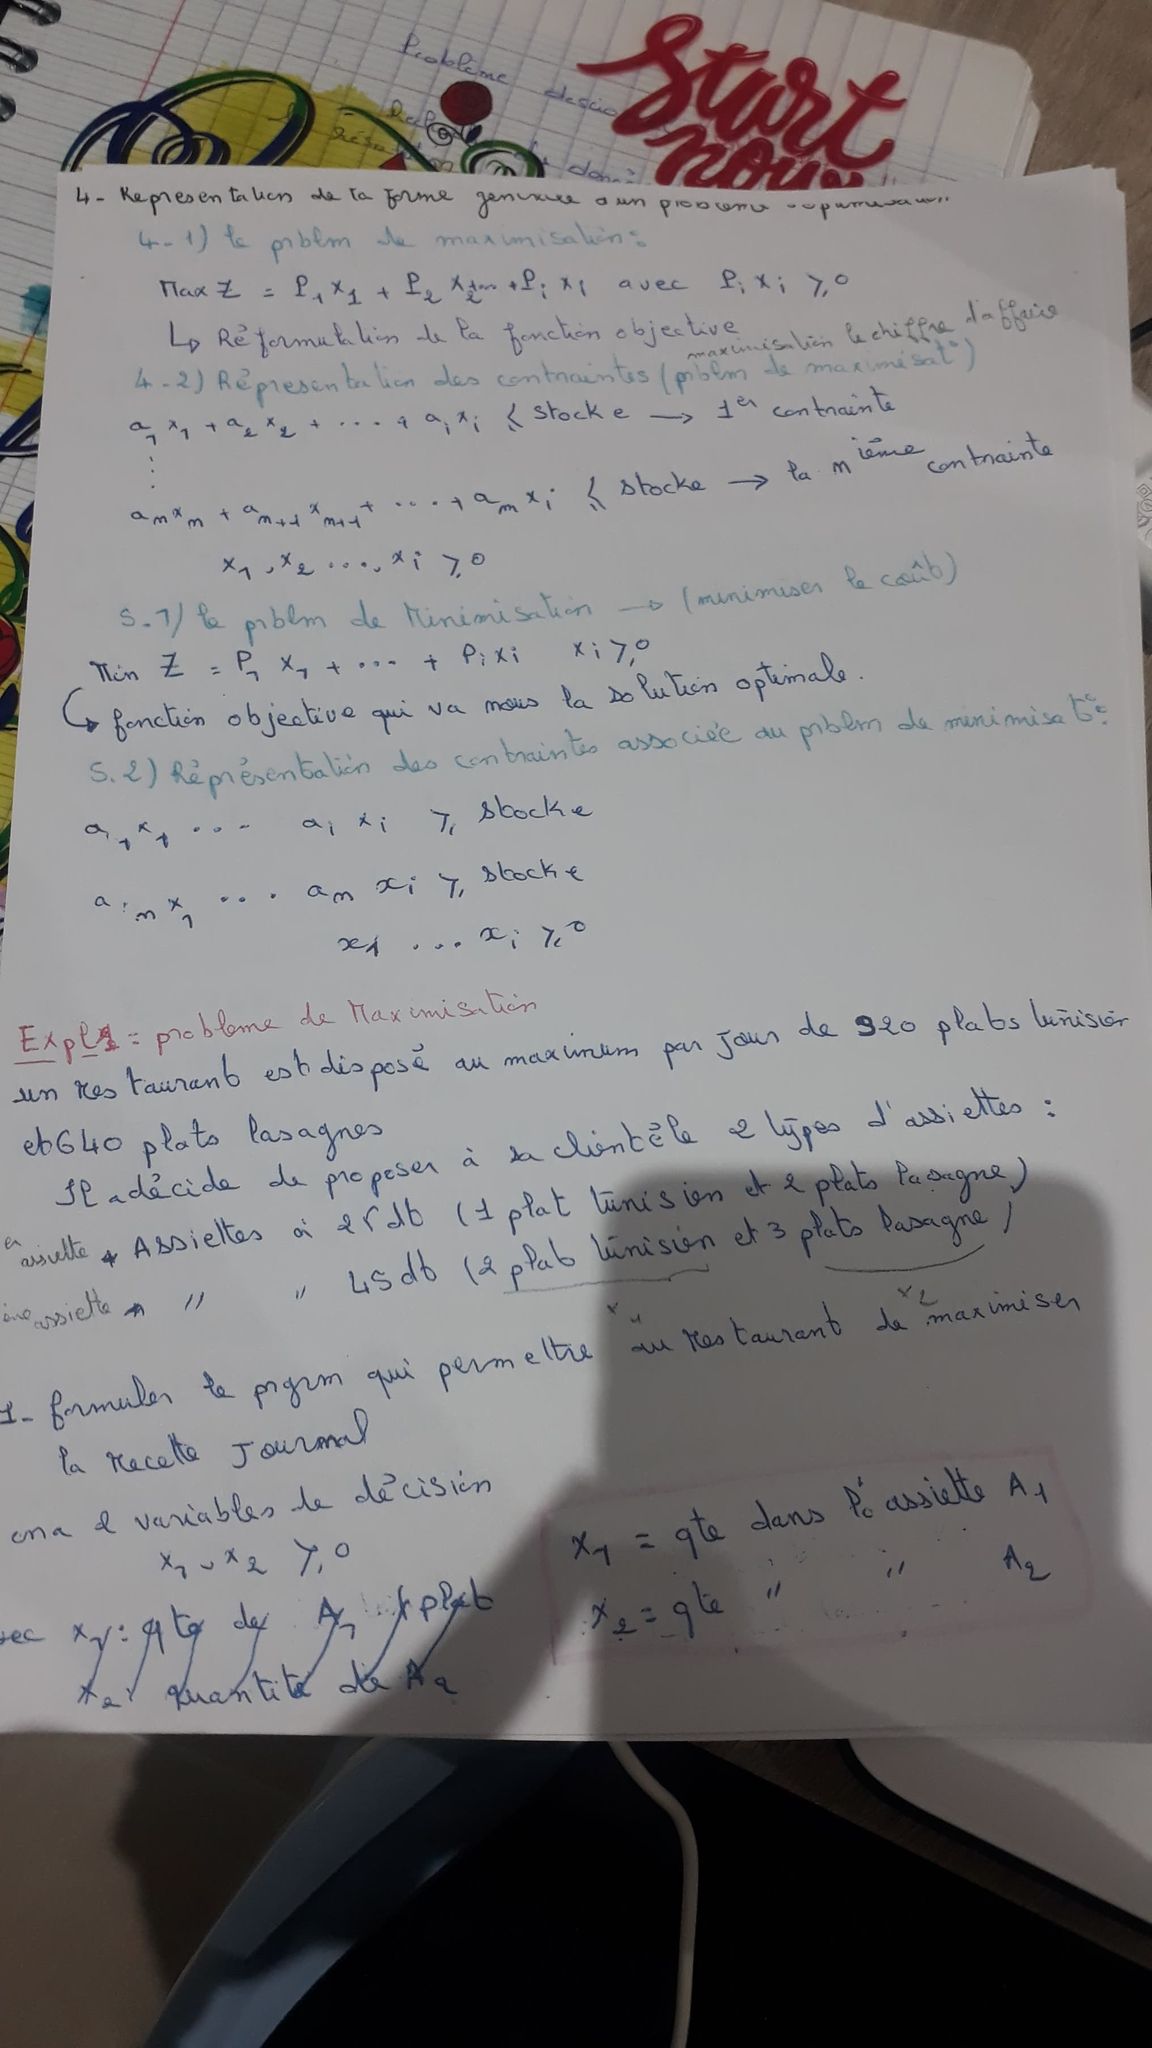 Problème
start
now
4- Représentation de la forme générale d'un problème d'optimisation
4-1) le prblm de maximisation :
Max Z = P1 x1 + P2 x2 +...+ Pi xi avec Pi xi ≥ 0
↳ Réformulation de la fonction objective
maximisation le chiffre d'affaire
4-2) Répresentation des contraintes (prblm de maximisat°)
a1 x1 + a2 x2 + .... + ai xi ≤ stocke → 1er contrainte
⋮
am xm + am+1 xm+1 + .... + am xi ≤ stocke → la mième contrainte
x1, x2 ...., xi ≥ 0
5-1) le prblm de Minimisation → (minimiser le coût)
Min Z = P1 x1 + ... + Pi xi xi ≥ 0
↳ fonction objective qui va nous la solution optimale.
5.2) Réprésentation des contraintes associée au prblm de minimisat°:
a1 x1 ... ai xi ≥ stocke
a.m x1 .... am xi ≥ stocke
x1 ... xi ≥ 0
Expl1 = probleme de Maximisation
un restaurant est disposé au maximum par jour de 920 plats tunision
et 640 plats lasagnes
Il a décide de proposer à sa clientèle 2 types d'assiettes :
assiette Assiettes à 25 dt (1 plat tunision et 2 plats lasagne)
assiette " " 45 dt (2 plat tunision et 3 plats lasagne)
x1 x2
1- formuler le prgrm qui permettre au restaurant de maximiser
la recette Journal
on a 2 variables de décision
x1, x2 ≥ 0
x1 = qte dans l' assiette A1
x2 = qte " " A2
x1 : qte de A1 plat
x2 : quantite de A2